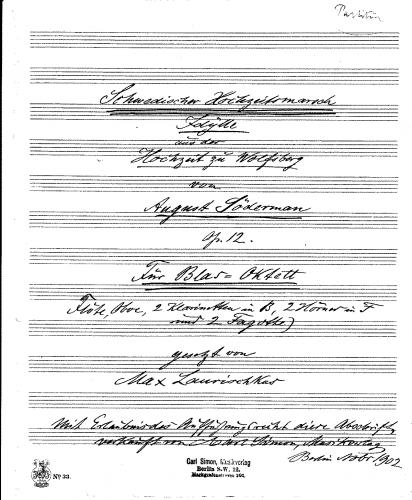 Partitur
Schwedischer Hochzeitsmarsch
Idylle
aus der
Hochzeit zu Wolfsberg
von
August Söderman
Op. 12.
Für Blas=Oktett
Flöte, Oboe, 2 Klarinetten in B, 2 Hörner in F
und 2 Fagotte)
gesetzt von
Max Laurischkus
Mit Erlaubnis des Aufführungsrecht diese Abschrift
verkauft von Carl Simon, Musikverlag
Berlin Nobr 1902
Carl Simon, Musikverlag
Berlin S.W. 12.
Markgrafenstrasse 101.
No 33.